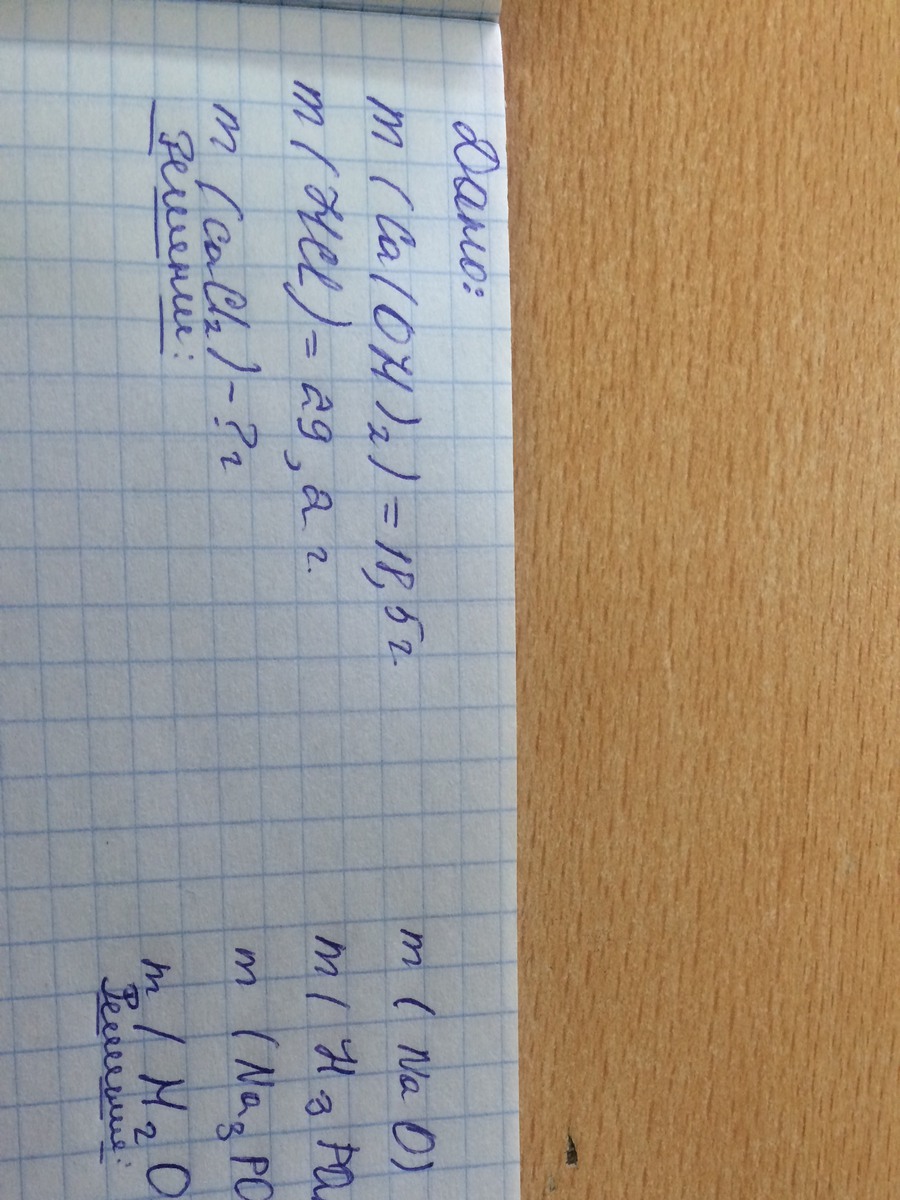 Дано:
m (Ca(OH)2) = 18,5 г.
m (HCl) = 29,2 г.
m (CaCl2) - ? г
Решение:
m (NaO)
m (H3PO
m (Na3PO
m (H2O
Решение: